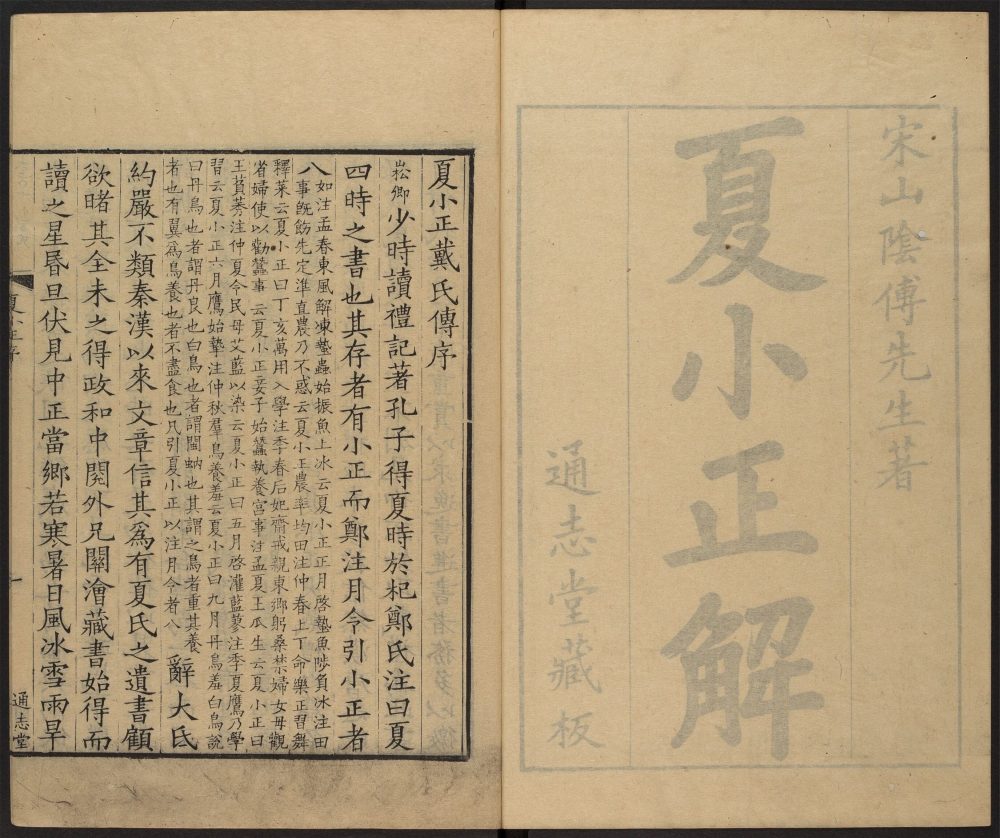 宋山陰傅先生著
夏小正解
通志堂藏板
夏小正戴氏傳序
崧卿少時讀禮記著孔子得夏時於杞鄭氏注曰夏
四時之書也其存者有小正而鄭注月令引小正者
八
如注孟春東風解凍蟄蟲始振魚上冰云夏小正正月啓蟄魚陟負冰注田
事既飭先定準直農乃不惑云夏小正農率均田注仲春上丁命樂正習舞
釋菜云夏小正曰丁亥萬用入學注季春后妃齋戒親東鄉躬桑禁婦女毋觀
省婦使以勸蠶事云夏小正妾子始蠶執養宮事注孟夏王瓜生云夏小正曰
王萯莠注仲夏令民毋艾藍以染云夏小正曰五月啓灌藍蓼注季夏鷹乃學
習云夏小正六月鷹始摯注仲秋羣鳥養羞云夏小正曰九月丹鳥羞白鳥說
曰丹鳥也者謂丹良也白鳥也者謂閩蚋也其謂之鳥者重其養
者也有翼爲鳥養也者不盡食也凡引夏小正以注月令者八
辭大氐
約嚴不類秦漢以來文章信其爲有夏氏之遺書顧
欲睹其全未之得政和中閱外兄關澮藏書始得而
讀之星昬旦伏見中正當鄉若寒暑日風冰雪雨旱
夏小正序
一
通志堂